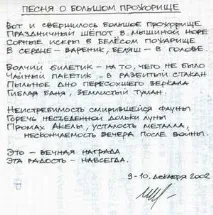 ПЕСНЯ О БОЛЬШОМ ПРОЖОРИЩЕ
ВОТ И СВЕРШИЛОСЬ БОЛЬШОЕ ПРОЖОРИЩЕ
ПРАЗДНИЧНЫЙ ШЕПОТ В МЫШИНОЙ НОРЕ
СОРНЫЕ ИСКРЫ В БЕЛЁСОМ ПОЖАРИЩЕ
В СЕРДЦЕ – ВАРЕНИК, БЕЛЯШ – В ГОЛОВЕ.
ВОЛЧИЙ БИЛЕТИК – НА ТО, ЧЕГО НЕ БЫЛО
ЧАЙНЫЙ ПАКЕТИК – В РАЗБИТЫЙ СТАКАН
ПЫЛЬНОЕ ДНО ПЕРЕСОХШЕГО
ГИБЛАЯ БАНЯ, ЗЕМЛИСТЫЙ ТУМАН.
НЕИСТРЕБИМОСТЬ СМИРИВШЕЙСЯ ФАУНЫ
ГОРЕЧЬ НЕСЪЕДЕННОЙ ДОЛЬКИ ЛУНЫ
ПРОМАХ АКЕЛЫ, УСТАЛОСТЬ МЕТАЛЛА,
НЕСКОНЧАЕМОСТЬ ВЕЧЕРА ПОСЛЕ ВОЙНЫ.
ЭТО – ВЕЧНАЯ НАГРАДА
ЭТА РАДОСТЬ – НАВСЕГДА.
9-10. ДЕКАБРЯ 2002